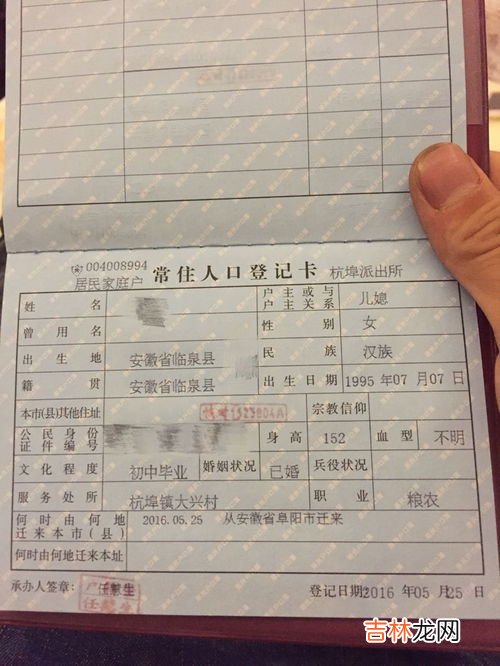 004008994
居民家庭户 常住人口登记卡 杭埠派出所
姓名 户主或与户主关系 儿媳
曾用名 性别 女
出生地 安徽省临泉县 民族 汉族
籍贯 安徽省临泉县 出生日期 1995年07月07日
本市(县)其他住址 宗教信仰
公民身份证件编号 身高 152 血型 不明
文化程度 初中毕业 婚姻状况 已婚 兵役状况
服务处所 杭埠镇大兴村 职业 粮农
何时由何地迁来本市(县) 2016.05.25 从安徽省阜阳市迁来
何时由何地迁来本址
承办人签章: 登记日期:2016年05月25日
吉林龙网